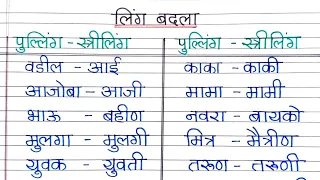 लिंग बदला
पुल्लिंग - स्त्रीलिंग
वडील - आई
आजोबा - आजी
भाऊ - बहीण
मुलगा - मुलगी
युवक - युवती
पुल्लिंग - स्त्रीलिंग
काका - काकी
मामा - मामी
नवरा - बायको
मित्र - मैत्रीण
तरूण - तरूणी